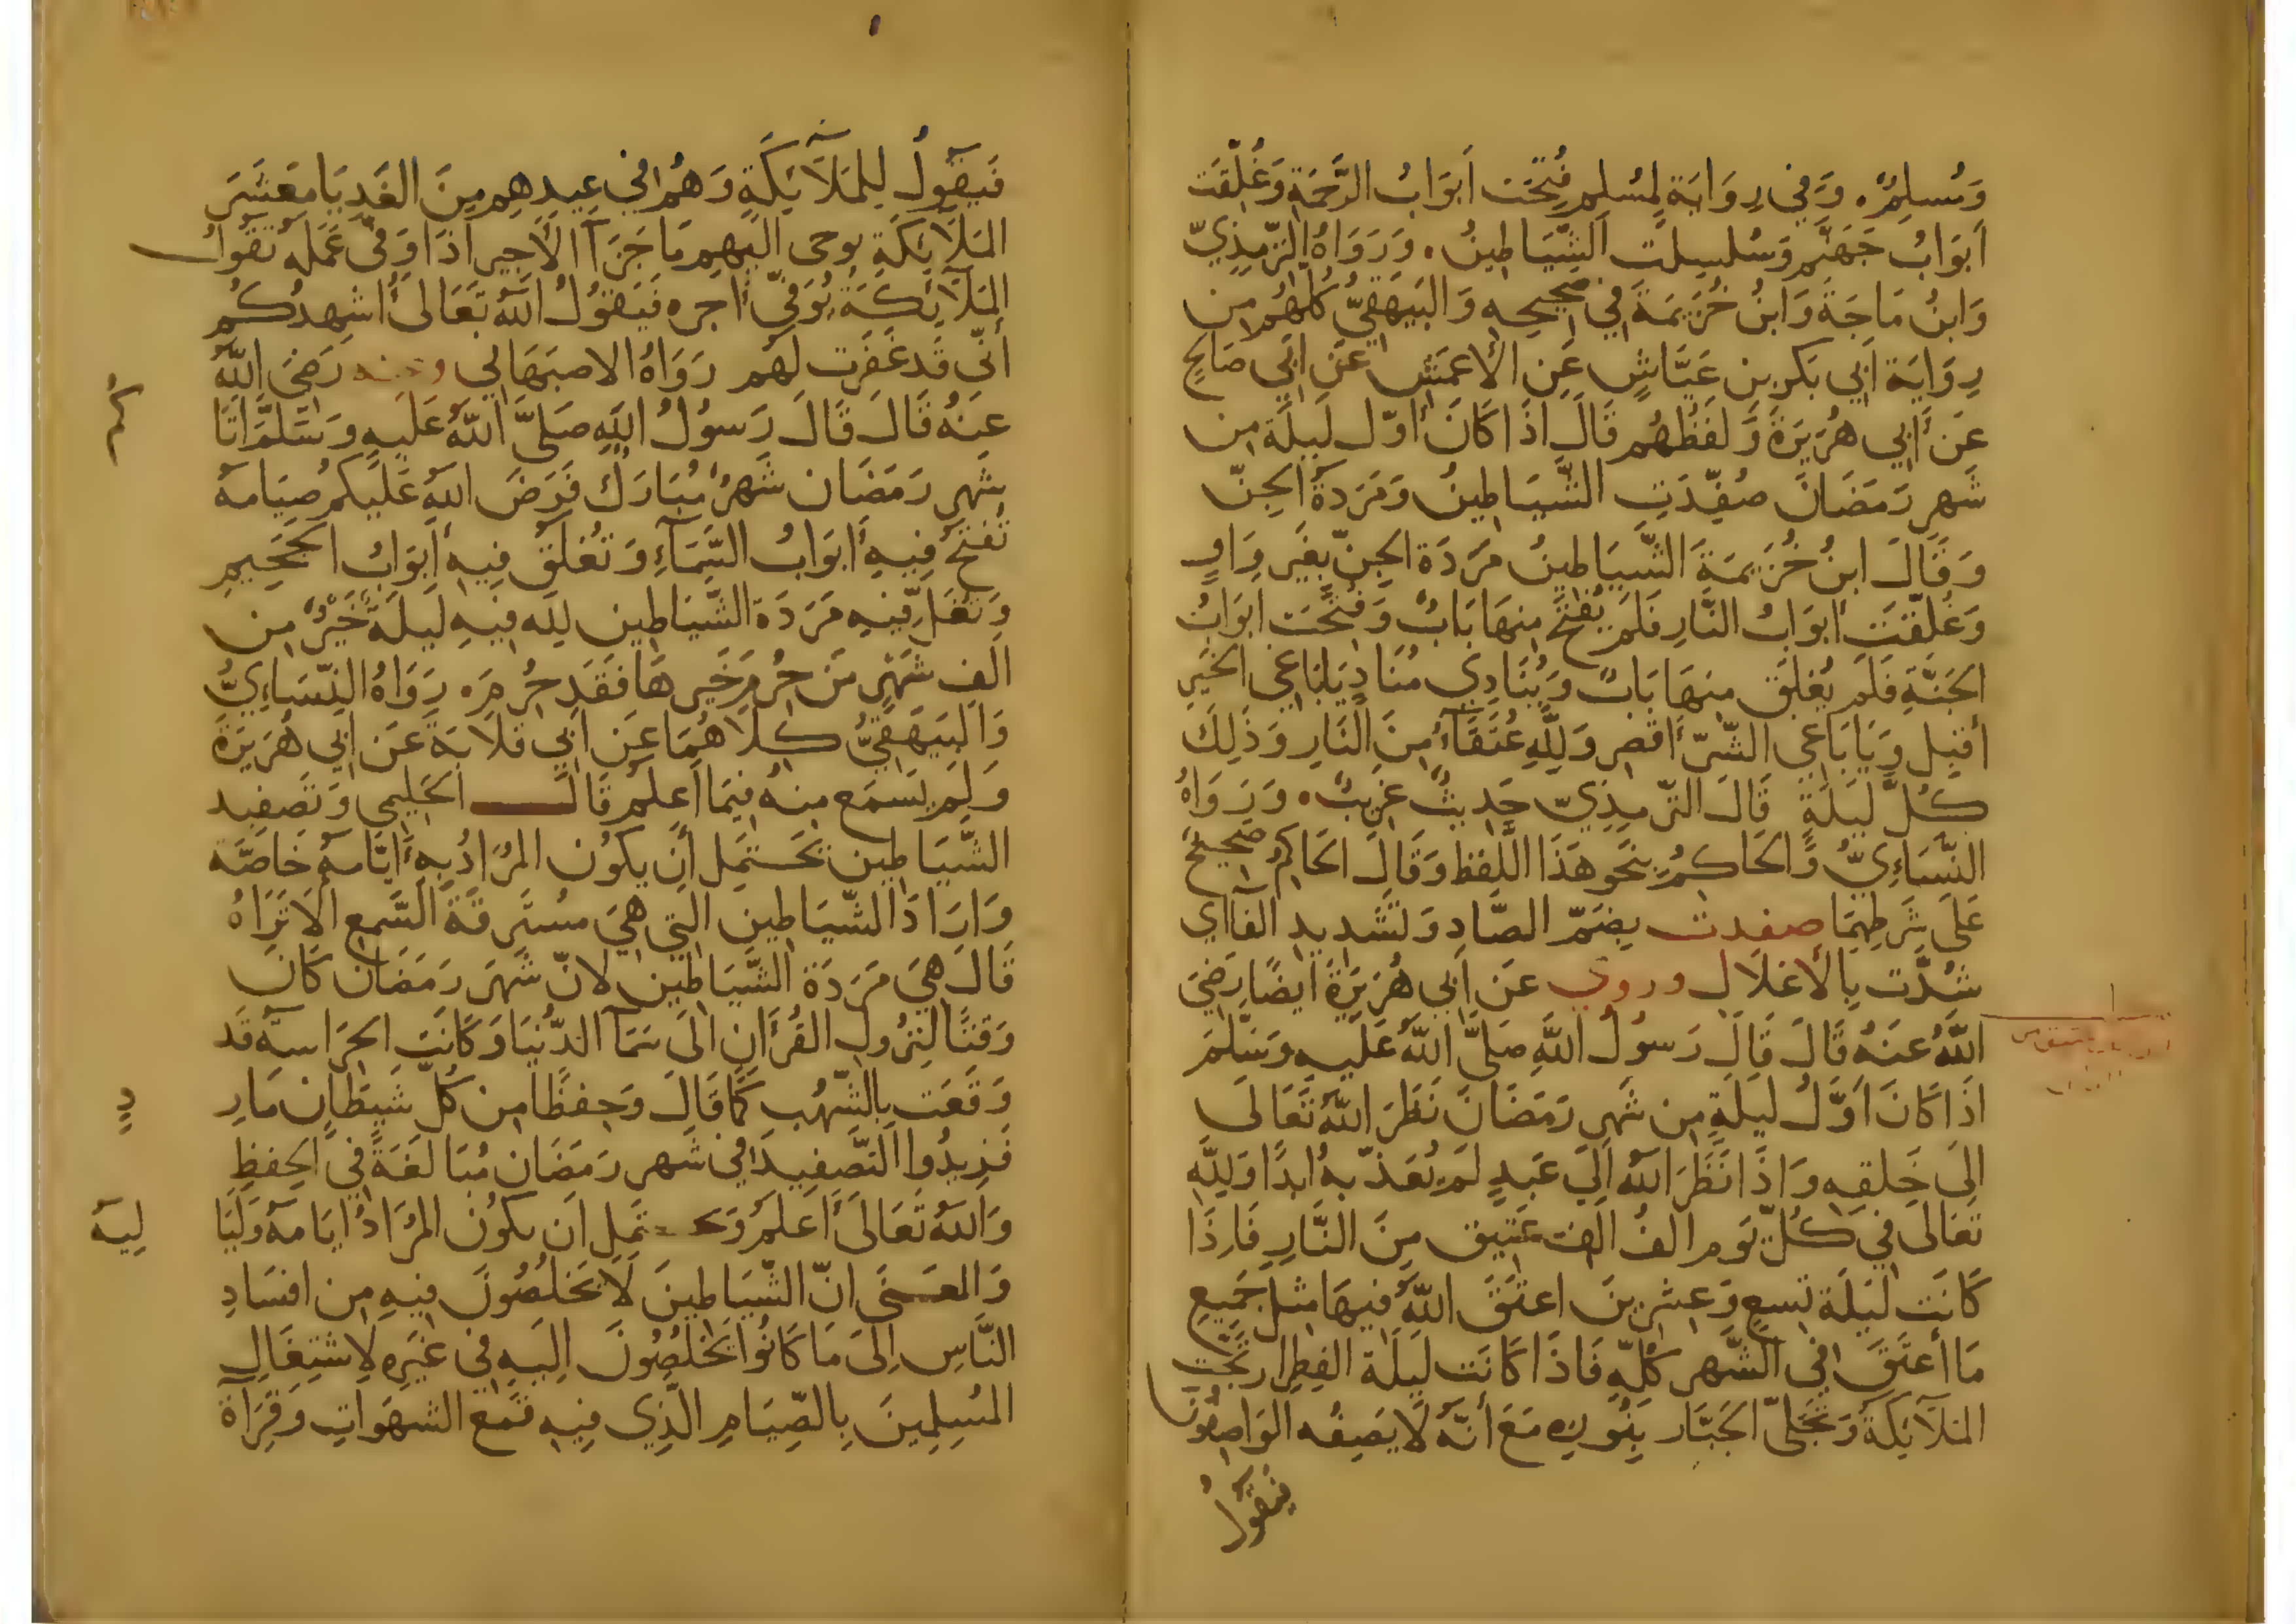 وَمُسلِمٌ. وَفي رِوَايَة لِمُسلِم فُتِحَت اَبوَابُ الرَّحمَةِ وَغُلِّقَت
اَبوَابُ جَهَنَّم وَسُلسِلَت الشَّيَاطِينُ. وَرَوَاهُ التِّرمِذِيّ
وَابنُ مَاجَةَ وَابنُ خُزَيمَةَ فِي صَحِيحِهِ وَالبَيهَقِيُّ كُلُّهُم مِن
رِوَايَة اَبِي بَكر بن عَيَّاشٍ عَنِ الأعمَشِ عَن اَبِي صَالِحٍ
عَن أَبِي هُرَيرَةَ وَلَفظُهُم قَالَ اذَا كَانَ أوّل لَيلَة مِن
شَهرِ رَمَضَانَ صُفِّدَتِ الشَّيَاطِينُ وَمَرَدَةُ الجِنّ
وَقَالَ ابنُ خُزَيمَةَ الشَّيَاطِينُ مَرَدَة الجِنّ بِغَيرِ وَاوٍ
وَغُلِّقَت أَبوَابُ النَّارِ فَلَم يُفتَح مِنهَا بَابٌ وَفُتِّحَت ابوَابُ
الجَنَّةِ فَلَم يُغلَق مِنهَا بَابٌ وَيُنَادِي مُنَادٍ يَا بَاغِي الخَيرِ
أقبِل وَيَا بَاغِي الشَّرّ أَقصِر وَلِلَّهِ عُتَقَآءُ مِنَ النَّارِ وَذَلِكَ
كُلَّ لَيلَةٍ قَالَ التّرمِذِيّ حَدِيثٌ غَرِيبٌ. وَرَوَاهُ
النَّسَاءِيُّ وَالحَاكِمُ بِنَحو هَذَا اللَّفظ وَقَالَ الحَاكِمُ صَحِيحٌ
عَلَى شَرطِهِمَا صفدت بِضَمّ الصَّادِ وَتَشدِيدِ الفَآ اي
شُدَّت بِالأغلَالِ وروي عَن اَبِي هُرَيرَةَ ايضًا رَضِيَ
اللَّهُ عَنهُ قَالَ قَالَ رَسُولُ اللَّهِ صَلَّى اللَّهُ عَلَيهِ وَسَلَّمَ
اذَا كَانَ اَوَّلُ لَيلَةٍ مِن شَهرِ رَمَضَانَ نَظَرَ اللَّهُ تَعَالَى
الِىَ خَلقِهِ وَاذَا نَظَرَ اللَّهُ الِىَ عَبدٍ لَم يُعَذّبهُ ابدًا وَلِلَّهِ
تَعَالَى فِي كُلّ يَوم الفُ الفِ عَتِيق مِنَ النَّارِ فَاِذَا
كَانَت لَيلَة تِسعٍ وَعِشرِينَ اعتَقَ اللَّهُ فِيهَا مِثلَ جَمِيعِ
مَا أعتَقَ فِي الشَّهرِ كُلِّهِ فَاذَا كَانَت لَيلَة الفِطرِ ارتَجَّت
المَلَآئِكَةُ وَتَجَلَّى الجَبَّار بِنُورِهِ مَعَ أنَّهُ لَا يَصِفُه الوَاصِفُونَ
فيَقُولُ
فَيَقُولُ لِلمَلَآئِكَةِ وَهُم فِي عِيدِهِم مِنَ الغَدِ يَا مَعشَرَ
المَلَآئِكَةِ يوحى اليهِم مَا جَزَآ الأجِيرِ اذَا وَفّى عَمَلَهُ تَقُولُ
المَلَآئِكَةُ يُوَفَّى أجره فَيَقُولُ اللَّهُ تَعَالَى أُشهِدُكُم
أنّى قَد غَفَرت لَهُم رَوَاهُ الاصبَهَانِي وعنه رَضِيَ اللَّهُ
عَنهُ قَالَ قَالَ رَسُولُ اللَّهِ صَلَّى اللَّهُ عَلَيهِ وَسَلَّمَ اتَا
شَهرِ رَمَضَان شَهرٌ مُبَارَك فَرَضَ اللَّهُ عَلَيكُم صِيَامَهُ
تُفتَحُ فِيهِ أبوَابُ السَّمَآءِ وَتُغلَقُ فِيهِ أَبوَابُ الجَحِيمِ
وَتُغَلّ فِيهِ مَرَدَة الشَّيَاطِين لِلهِ فِيهِ لَيلَةٌ خَيرٌ مِن
الفِ شَهرٍ مَن حُرِمَ خَيرهَا فَقَد حُرِمَ. رَوَاهُ النَّسَاءِيُّ
وَالبَيهَقِيُّ كِلَاهُمَا عَن أَبِي قلَابَةَ عَن ابِي هُرَيرَةَ
وَلَم يَسمَع مِنهُ فِيمَا أعلَم قَالَ الحَلِيمِى وَتَصفِيد
الشَّيَاطِين يَحتَمِل أن يَكُون المُرَادُ بِهِ أَيَّامه خَاصَّة
وَارَادَ الشَّيَاطِين التِي هِيَ مُستَرِقَة السَّمعِ ألَا تَرَاهُ
قَالَ هِيَ مَرَدَة الشَّيَاطِين لانّ شَهرَ رَمَضَان كَانَ
وَقتًا لِنزُولِ القُرآنِ الَى سَمَآ الدُّنيَا وَكَانَت الحَرَاسَة قَد
وَقَعَت بِالشّهُبِ كَمَا قَالَ وَحِفظًا مِن كُلّ شَيطَانٍ مَارِد
فَزِيدُوا التَّصفِيدَ فِي شَهر رَمَضَان مُبَالَغَةً فِي الحِفظِ
وَاللَّهُ تَعَالَى أَعلَمُ وَيحتَمِل ان يكُون المُرَادُ ايَامهُ وَلَيَالِيهُ
وَالمعنَى انّ الشَّيَاطِينَ لَا يَخلُصُونَ فِيهِ مِن افسَادِ
النَّاسِ اِلىَ مَا كَانُوا يَخلُصُونَ الِيَهِ فِي غَيرِهِ لِاشتِغَالِ
المُسلِمِينَ بِالصِّيَامِ الَّذِي فِيهِ قَمع الشَّهَوَاتِ وَقِرَآة